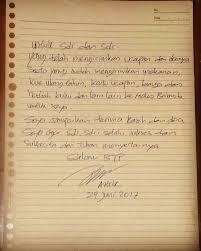 Untuk Sdr dan Sdri
yang telah mengirimkan ucapan dan dengan
yang telah mengirimkan makanan,
kue ulang tahun, kartu ucapan, bunga dan
buku dan lain lain ke Mako Brimob
untuk saya.
Saya sampaikan terima kasih dan doa
Saya agar Sdr, Sdri selalu sukses dan
Sukacita dan Tuhan menyertainya
Salam BTP
29 Juni 2017